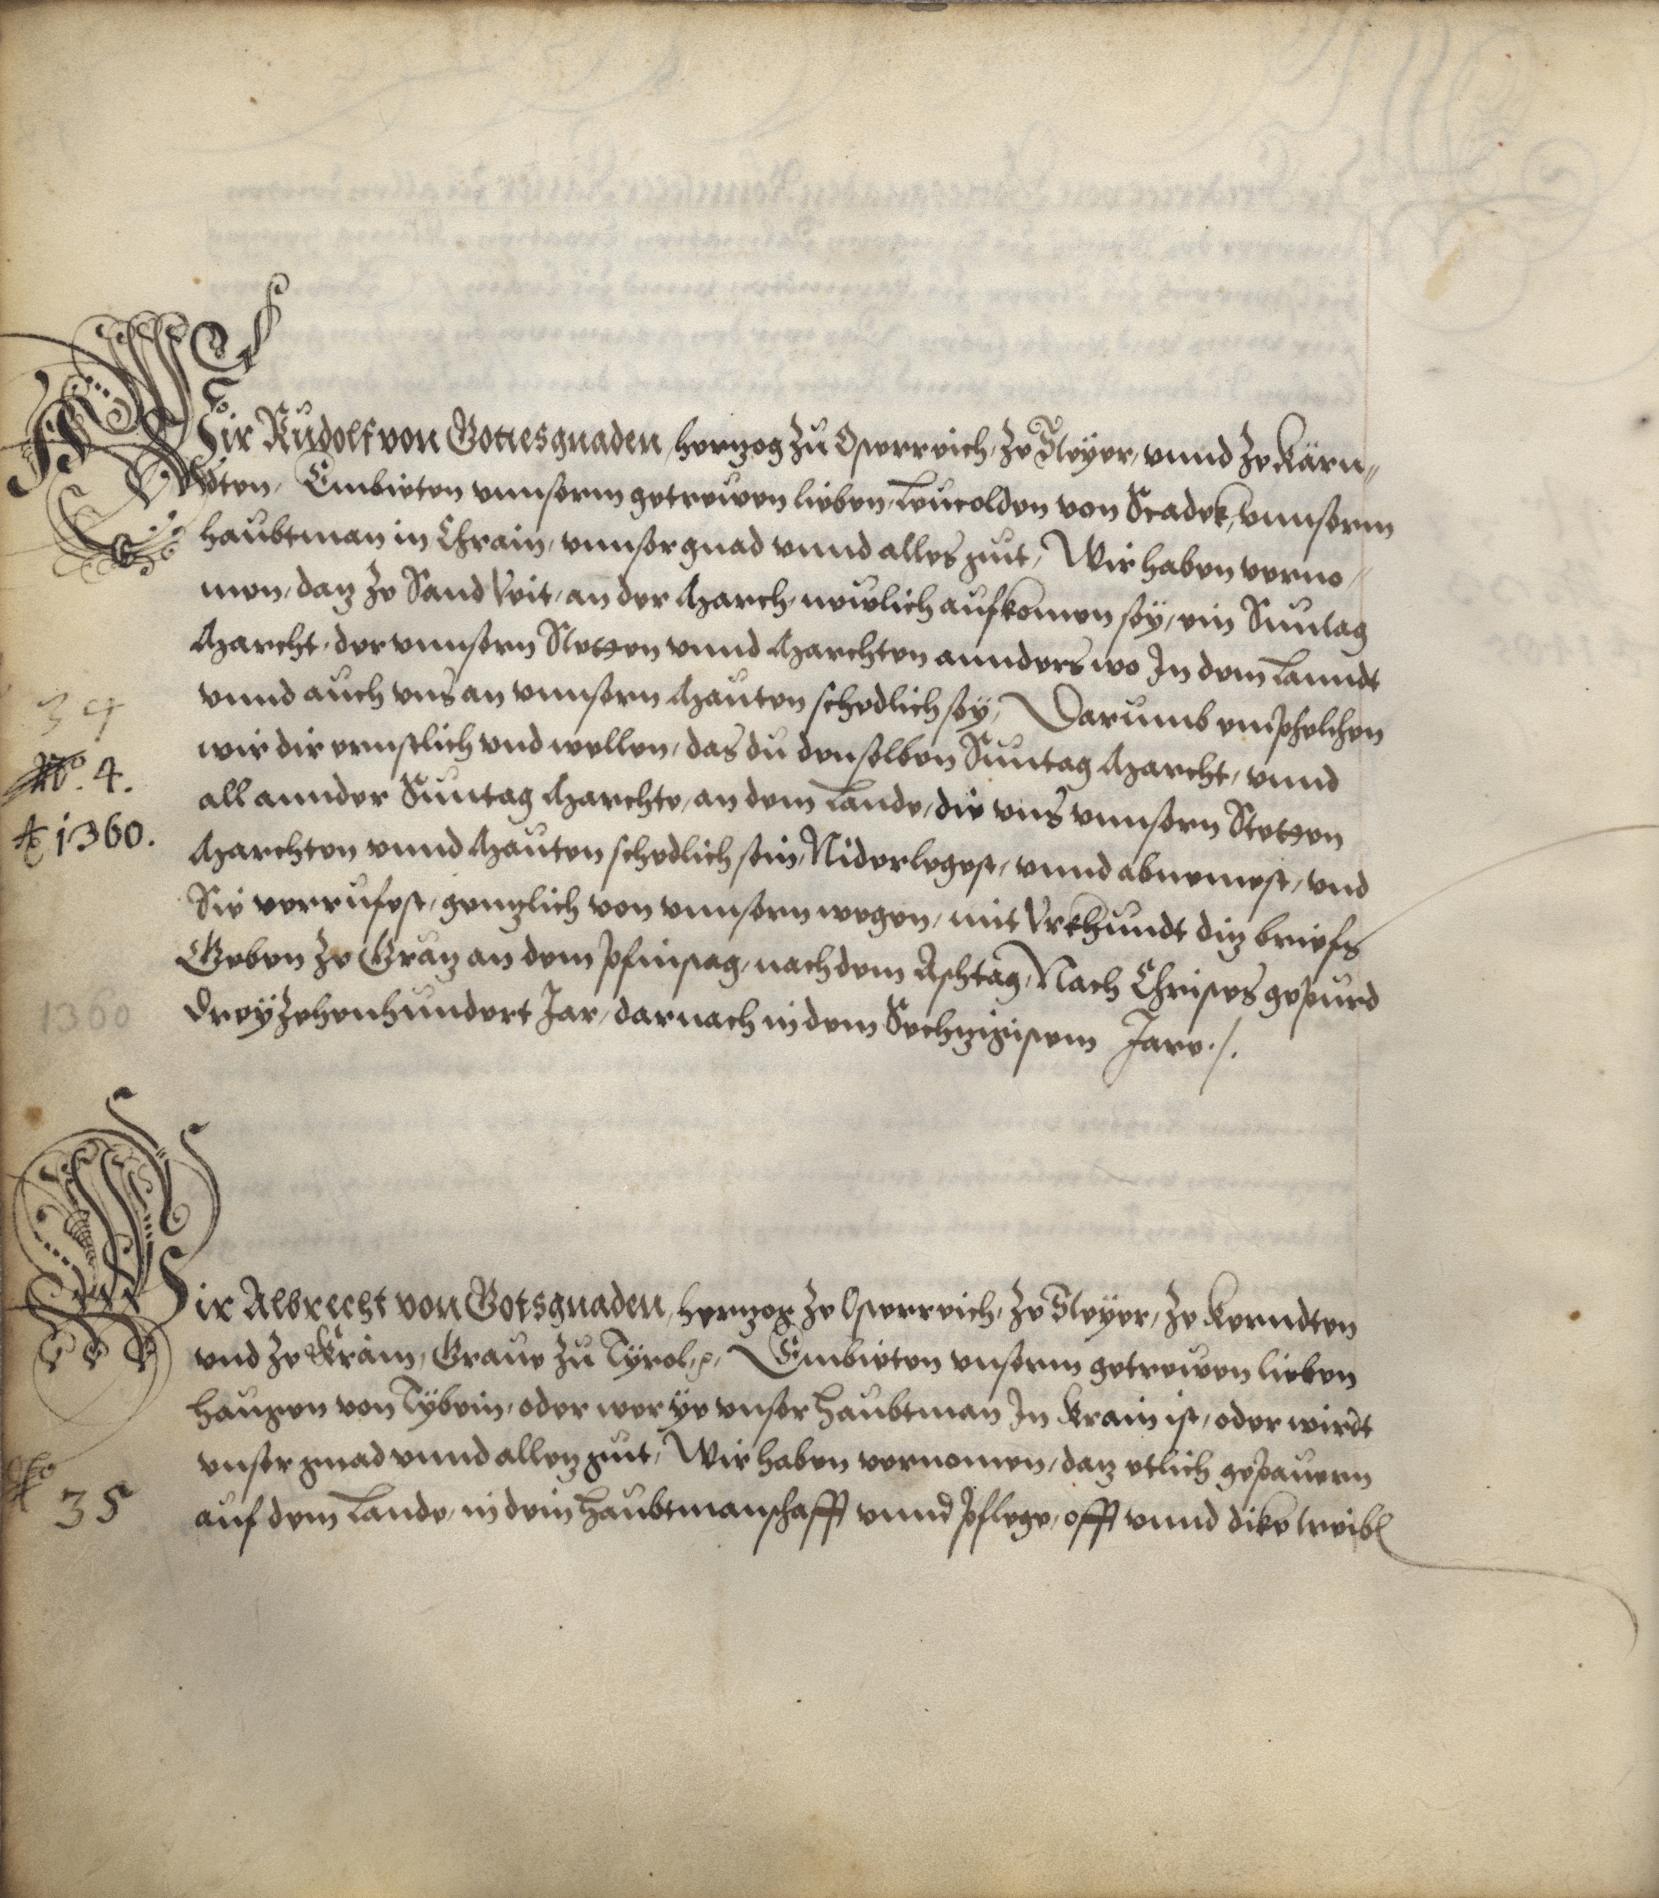 Wir Rudolf von Gottesgnaden, hertzog zu Osterreich, ze Steyer, vnnd ze Kärn„
dten, Embieten vnnserm getrewen lieben, Leutolden von Stadek, vnnserm
haubtman in Chrain, vnnser gnad vnnd alles gut, Wir haben verno„
men, datz ze Sand Veit, an der March, newlich aufkomen sey, ein Suntag
Marcht, der vnnsern Stetten vnnd Marchten annderswo In dem Lanndt
vnnd auch vns an vnnsern Mauten schedlich sey, Darumb emphelchen
34
wir dir ernstlich vnd wellen, das du denselben Suntag Marcht, vnnd
No. 4.
all annder Suntag Marchte, an dem Lande, die vns vnnsern Stetten
Ao 1360.
Marchten vnnd Mauten schedlich sein, Niderlegest, vnnd abnemest, vnd
Sie verrufest, gentzlich von vnnsern wegen, mit Vrkhundt ditz briefs
Geben ze Gratz an dem Pfinstag, nach dem Aschtag, Nach Christes gepurd
1360
Dreyzehenhundert Jar, darnach in dem Sechtzigistem Jare ./.
Wir Albrecht von Gotsgnaden, hertzog ze Osterreich, ze Steyer, ze Kerndten
vnd ze Krain, Graue zu Tyrol, Embieten vnserm getrewen lieben
Haugen von Tybein, oder wer ye vnser Haubtman In Krain ist, oder wirdt
vnser gnad vnnd alletz gut, Wir haben vernomen, datz etlich gepauern
35
auf dem Lande, in dein Haubtmanschafft vnnd Pflege, offt vnnd dike treiben